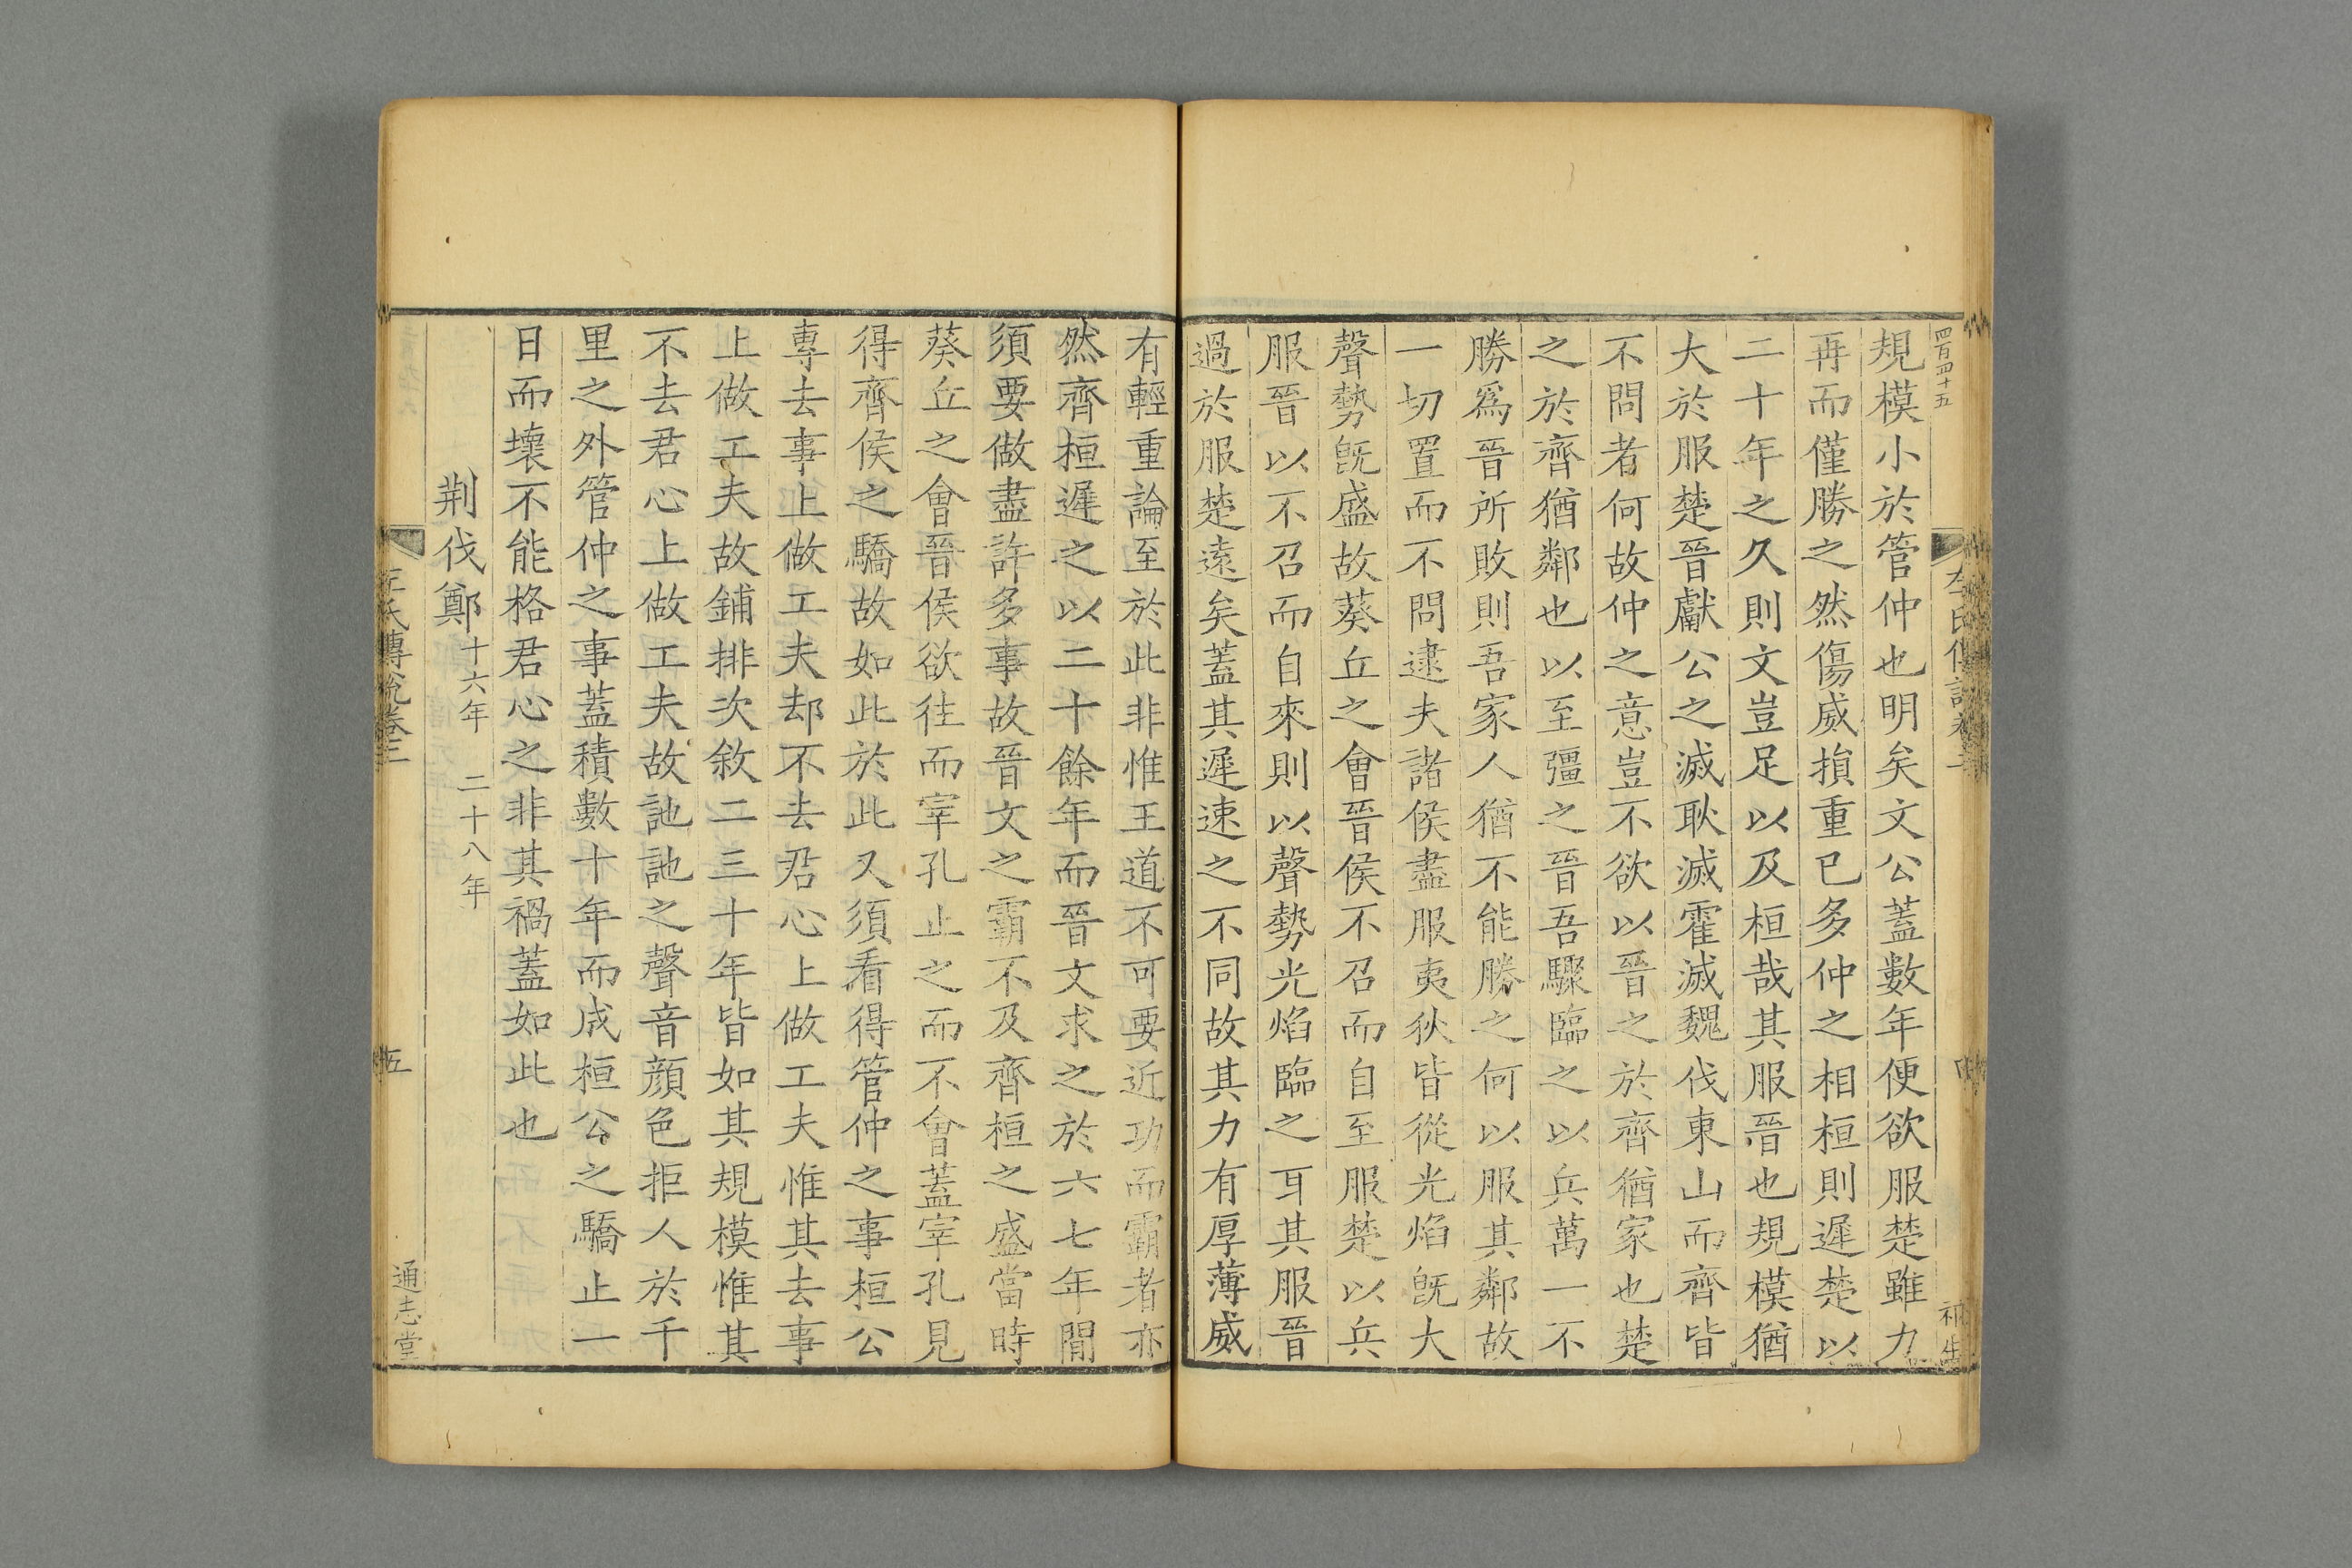 四百四十五
規模小於管仲也明矣文公蓋數年便欲服楚雖力
再而僅勝之然傷威損重已多仲之相桓則遲楚以
二十年之久則文豈足以及桓哉其服晉也規模猶
大於服楚晉獻公之滅耿滅霍滅魏伐東山而齊皆
不問者何故仲之意豈不欲以晉之於齊猶家也楚
之於齊猶鄰也以至彊之晉吾驟臨之以兵萬一不
勝爲晉所敗則吾家人猶不能勝之何以服其鄰故
一切置而不問逮夫諸侯盡服夷狄皆從光焰旣大
聲勢旣盛故葵丘之會晉侯不召而自至服楚以兵
服晉以不召而自來則以聲勢光焰臨之耳其服晉
過於服楚遠矣蓋其遲速之不同故其力有厚薄威
有輕重論至於此非惟王道不可要近功而霸者亦
然齊桓遲之以二十餘年而晉文求之於六七年閒
須要做盡許多事故晉文之霸不及齊桓之盛當時
葵丘之會晉侯欲徃而宰孔止之而不會蓋宰孔見
得齊侯之驕故如此於此又須看得管仲之事桓公
專去事上做工夫却不去君心上做工夫惟其去事
上做工夫故鋪排次敘二三十年皆如其規模惟其
不去君心上做工夫故訑訑之聲音顏色拒人於千
里之外管仲之事蓋積數十年而成桓公之驕止一
日而壞不能格君心之非其禍蓋如此也
荆伐鄭十六年 二十八年
左氏傳說卷二
五
通志堂